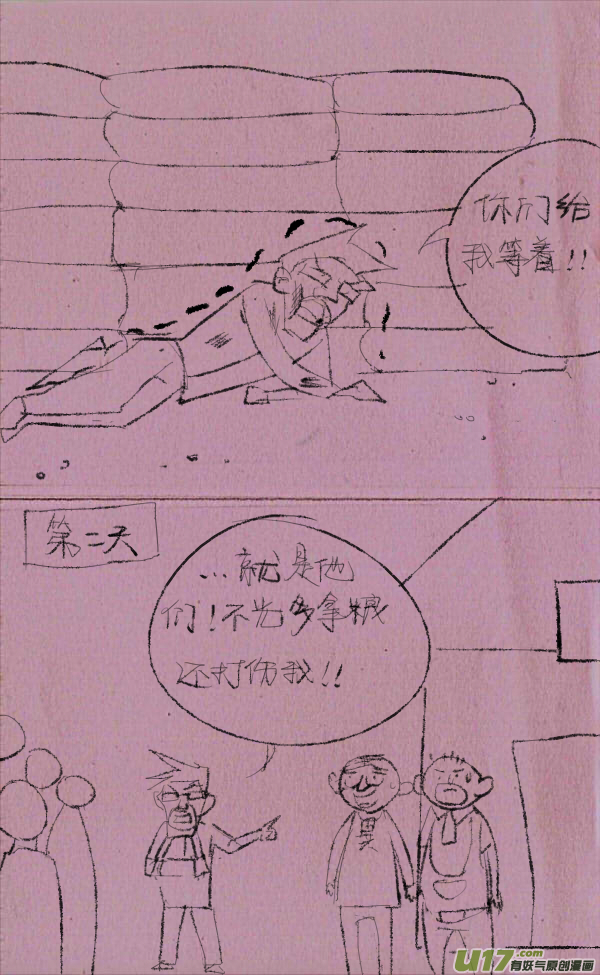 你们给
我等着!!
第二天
...就是他
们!不光多拿粮
还打伤我!!
U17.com
有妖气原创漫画